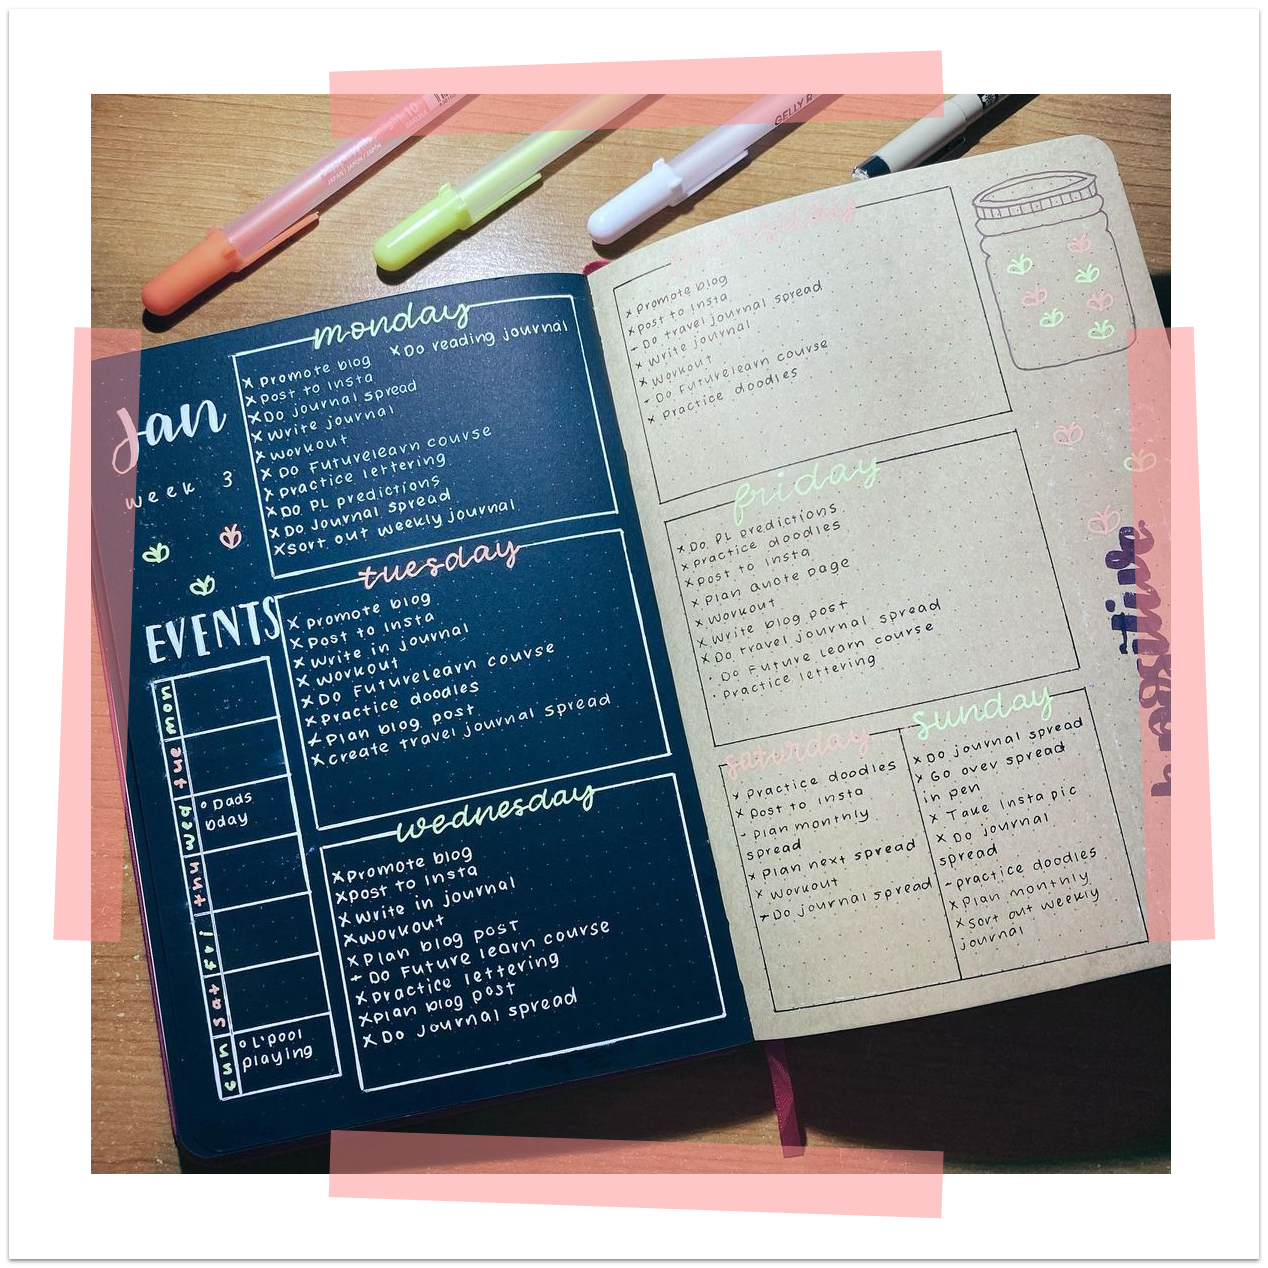 GELLY R
JAPAN | JAPON | JAPÓN
Jan
week 3
EVENTS
mon
tue
wed
° Dads
bday
thu
fri
sat
sun
° L'pool
playing
monday
x Promote blog x Do reading journal
x Post to Insta
x Do journal spread
x Write journal
x Workout
x Do Futurelearn course
x Practice lettering
x Do PL predictions
x Do Journal spread
x Sort out weekly journal
tuesday
x Promote blog
x Post to Insta
x Write in journal
x Workout
x Do Futurelearn course
x Practice doodles
x Plan blog post
x Create travel journal spread
wednesday
x Promote blog
x Post to Insta
x Write in journal
x Workout
x Plan blog post
- Do Future learn course
x Practice lettering
x Plan blog post
x Do journal spread
thursday
x Promote blog
x Post to Insta
- Do travel journal spread
x Write journal
x Workout
- Do Futurelearn course
x Practice doodles
friday
x Do PL predictions
x Practice doodles
x Post to Insta
x Plan quote page
x Workout
x Write blog post
x Do travel journal spread
· Do Future learn course
· Practice lettering
saturday
x Practice doodles
x Post to Insta
- Plan monthly
spread
x Plan next spread
x Workout
- Do journal spread
sunday
x Do journal spread
x Go over spread
in pen
x Take Insta pic
x Do journal
spread
- practice doodles
x Plan monthly
x Sort out weekly
journal
positive